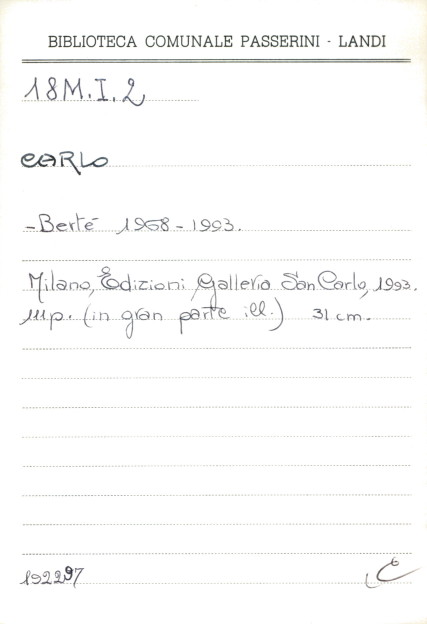 BIBLIOTECA COMUNALE PASSERINI - LANDI
18M.I.2
CARLO
- Berté 1968-1993.
Milano, Edizioni Galleria San Carlo, 1993.
111p. (in gran parte ill.) 31 cm.
192297